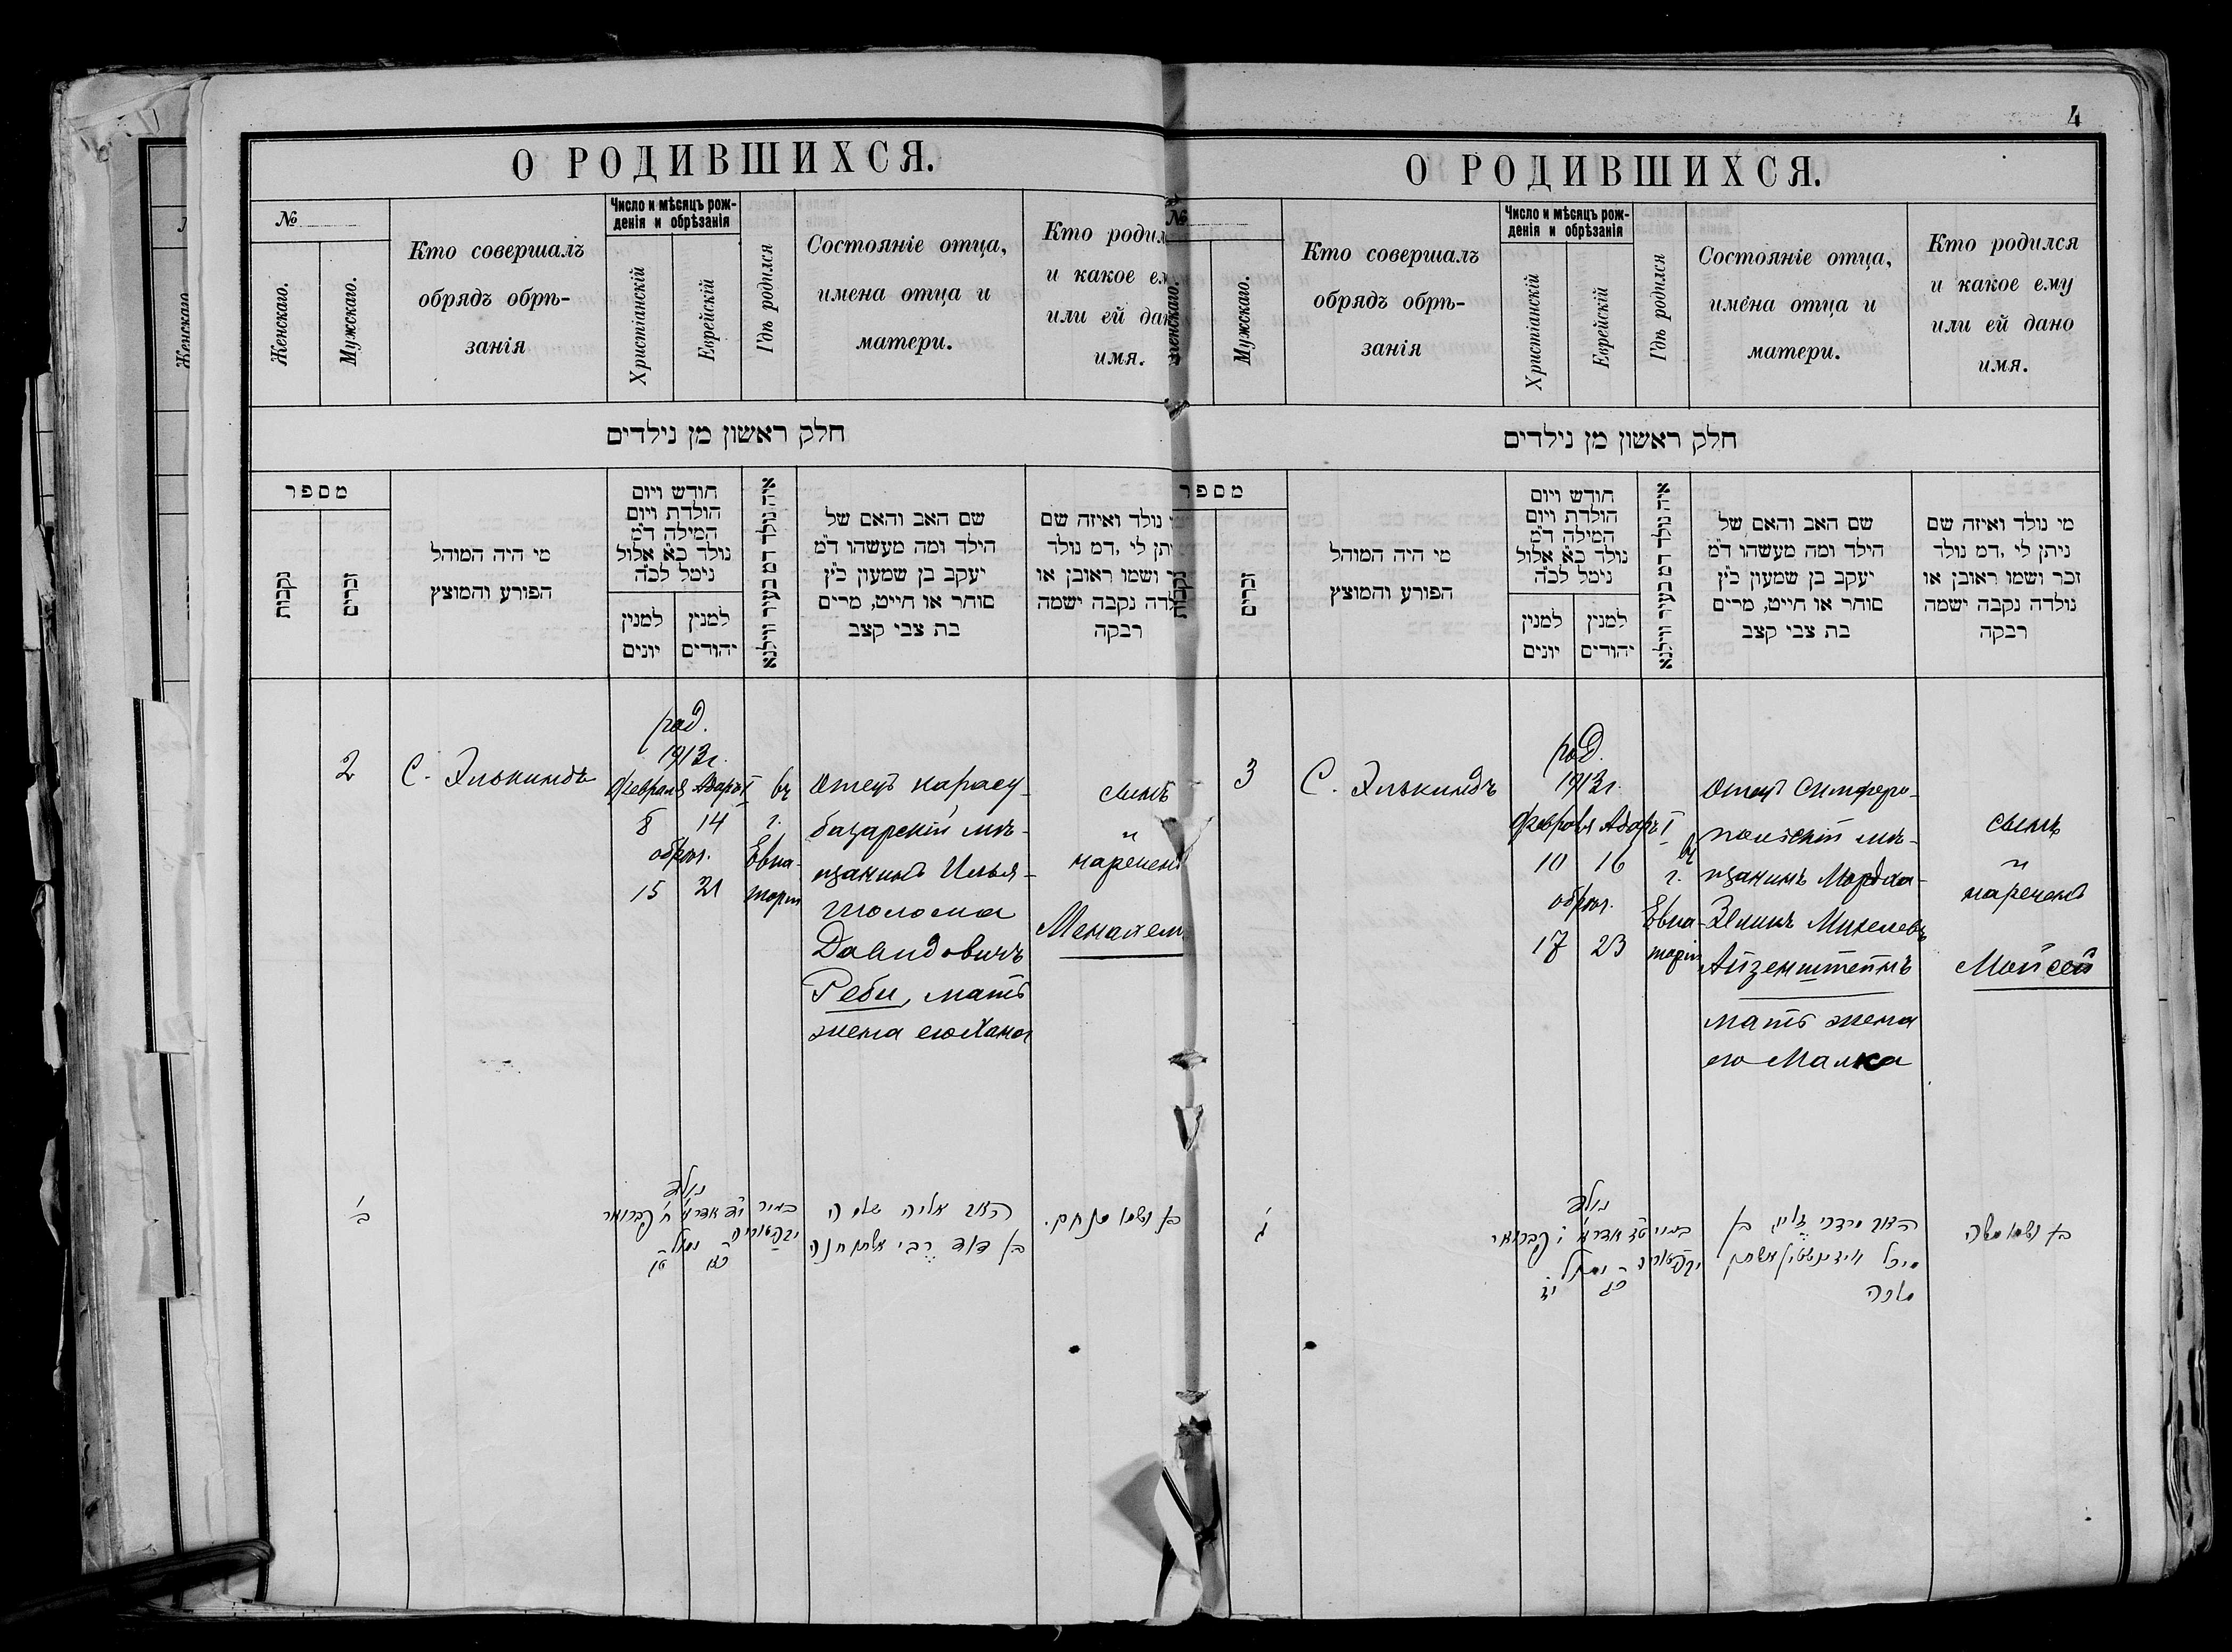 4
О РОДИВШИХСЯ.
№
Женскаго.
Мужскаго.
Кто совершалъ
обрядъ обрѣ-
занія
Число и мѣсяцъ рож-
денія и обрѣзанія
Христіанскій
Еврейскій
Гдѣ родился
Состояніе отца,
имена отца и
матери.
Кто родил
и какое ем
или ей дан
имя.
חלק ראשון מן נילדים
מספר
נקבות
זכרים
מי היה המוהל
הפורע והמוצץ
חודש ויום
הולדת ויום
המילה ד״מ
נולד כ״א אלול
נימל לכ״ה
למנין
יונים
למנין
יהודים
איה נולד דמ בעיר ווילנא
שם האב והאם של
הילד ומה מעשהו ד״מ
יעקב בן שמעון כ״ץ
סוחר או חייט, מרים
בת צבי קצב
נולד ואיזה שם
יתן לי ,דמ נולד
ושמו ראובן או
לדה נקבה ישמה
רבקה
2
С. Элькиндъ
род.
1913г.
Февраля Адаръ I
8 14
обрѣз.
15 21
въ
г.
Евпа-
торіи
Отецъ карасу-
базарскій мѣ-
щанинъ Илья-
Шолома
Давидовичъ
Реби, мать
жена его Хана
сынъ
и
нареченъ
Менахем
ב׳
נולד
י״ד אדר א׳ ח׳ פברואר
נימול
כ״א ט״ו
בעיר
האב אליה שלמה
בן דוד רבי אשתו חנה
בן ושמו מנחם.
О РОДИВШИХСЯ.
№
Женскаго.
Мужскаго.
Кто совершалъ
обрядъ обрѣ-
занія
Число и мѣсяцъ рож-
денія и обрѣзанія
Христіанскій
Еврейскій
Гдѣ родился
Состояніе отца,
имена отца и
матери.
Кто родился
и какое ему
или ей дано
имя.
חלק ראשון מן נילדים
מספר
נקבות
זכרים
מי היה המוהל
הפורע והמוצץ
חודש ויום
הולדת ויום
המילה ד״מ
נולד כ״א אלול
נימל לכ״ה
למנין
יונים
למנין
יהודים
איה נולד דמ בעיר ווילנא
שם האב והאם של
הילד ומה מעשהו ד״מ
יעקב בן שמעון כ״ץ
סוחר או חייט, מרים
בת צבי קצב
מי נולד ואיזה שם
ניתן לי ,דמ נולד
זכר ושמו ראובן או
נולדה נקבה ישמה
רבקה
3
С. Элькиндъ
род.
1913г.
Февраля Адаръ I
10 16
обрѣз.
17 23
въ
г.
Евпа-
торіи
Отецъ Симферо-
польскій мѣ-
щанинъ Мордха-
Зеликъ Михелевъ
Айзенштейнъ
мать жена
его Малка
сынъ
и
нареченъ
Мойсей
ג׳
נולד
ט״ז אדר א׳ י׳ פברואר
כ״ג י״ז
האב מרדכי זליג בן
מיכל
מלכה
בן ושמו משה